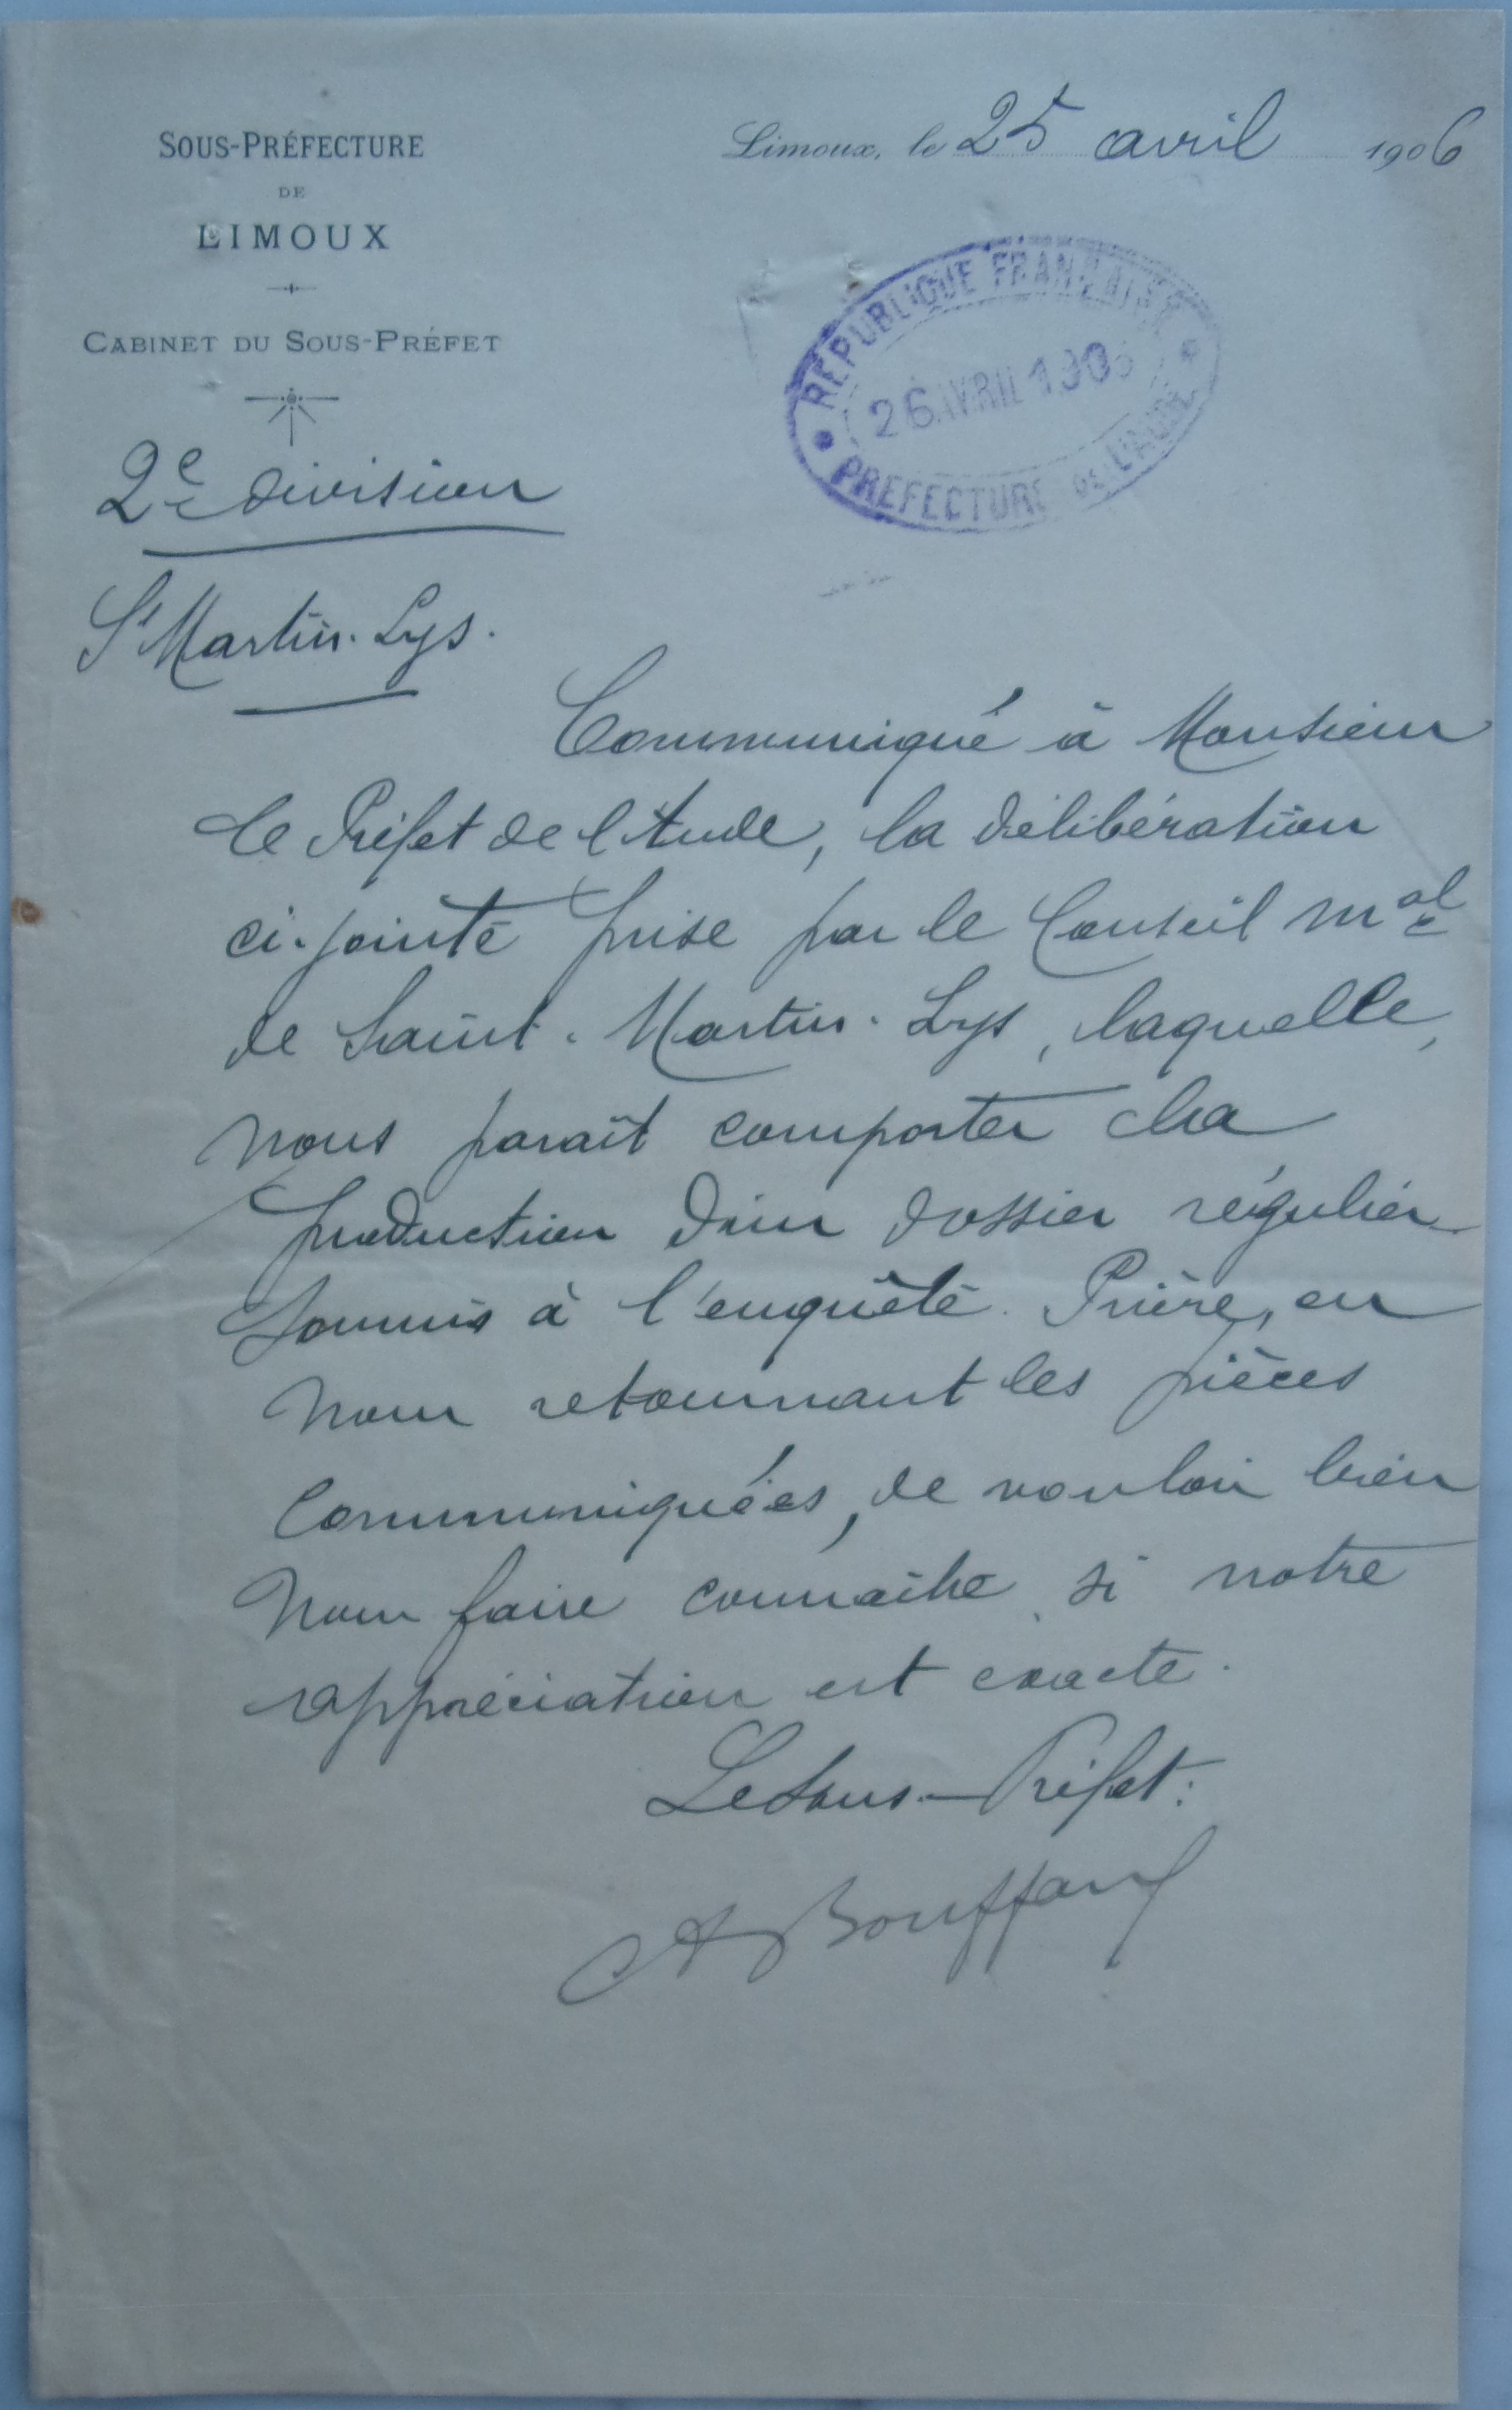 SOUS-PRÉFECTURE
DE
LIMOUX
CABINET DU SOUS-PRÉFET
Limoux, le 25 avril 1906
RÉPUBLIQUE FRANÇAISE
26 AVRIL 1906
PREFECTURE DE L'AUDE
2e division
St Martin-Lys.
Communiqué à Monsieur
le Préfet de l'Aude, la délibération
ci-jointe prise par le Conseil mal
de Saint-Martin-Lys, laquelle,
nous parait comporter la
production d'un dossier régulier
soumis à l'enquête. Prière, en
nous retournant les pièces
communiquées, de vouloir bien
nous faire connaître si notre
appréciation est exacte.
Le Sous-Préfet:
A Bouffard